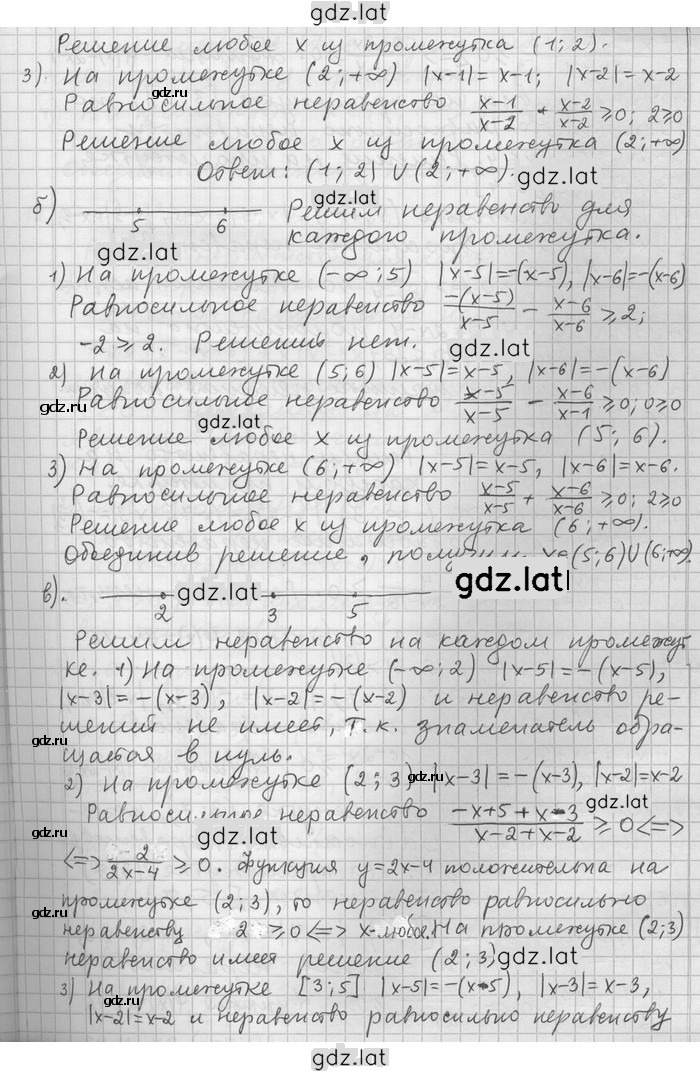 gdz.lat
Решение любое x из промежутка (1; 2).
3) На промежутке (2; +∞) |x-1| = x-1; |x-2| = x-2
Равносильное неравенство (x-1)/(x-2) + (x-2)/(x-2) ≥ 0; 2 ≥ 0
Решение любое x из промежутка (2; +∞)
Ответ: (1; 2) ∪ (2; +∞).
gdz.lat
б) 5 6 Решим неравенство для
gdz.lat
каждого промежутка.
gdz.lat
1) На промежутке (-∞; 5) |x-5| = -(x-5), |x-6| = -(x-6)
Равносильное неравенство -(x-5)/(x-5) - (x-6)/(x-6) ≥ 2;
-2 ≥ 2. Решений нет.
gdz.lat
2) На промежутке (5; 6) |x-5| = x-5, |x-6| = -(x-6)
gdz.ru
Равносильное неравенство (x-5)/(x-5) - (x-6)/(x-1) ≥ 0; 0 ≥ 0
gdz.lat
Решение любое x из промежутка (5; 6).
3) На промежутке (6; +∞) |x-5| = x-5, |x-6| = x-6.
Равносильное неравенство (x-5)/(x-5) + (x-6)/(x-6) ≥ 0; 2 ≥ 0
gdz.ru
Решение любое x из промежутка (6; +∞).
Объединив решение, x∈(5; 6) ∪ (6; +∞).
gdz.lat
в). 2 3 5
gdz.lat
Решим неравенство на каждом промежут
ке. 1) На промежутке (-∞; 2) |x-5| = -(x-5),
|x-3| = -(x-3), |x-2| = -(x-2) и неравенство ре-
шений не имеет, т.к. знаменатель обра-
gdz.ru
щается в нуль.
2) На промежутке [2; 3) |x-3| = -(x-3), |x-2| = x-2
gdz.ru
Равносильное неравенство (-x+5+x-3)/(x-2+x-2) ≥ 0 <=>
gdz.ru
gdz.lat
<=> -2/(2x-4) ≥ 0. Функция y = 2x-4 положительна на
промежутке (2; 3), то неравенство равносильно
неравенству 2 ≥ 0 <=> x-любое. На промежутке (2; 3)
gdz.ru
неравенство имеет решение (2; 3)
gdz.lat
3) На промежутке [3; 5] |x-5| = -(x-5), |x-3| = x-3,
gdz.ru
|x-2| = x-2 и неравенство равносильно неравенству
gdz.lat